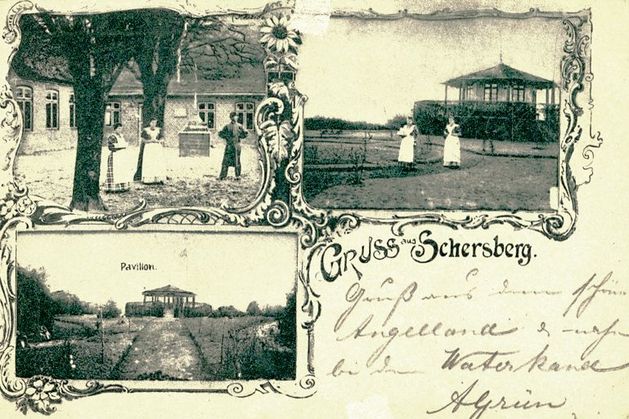 Pavillon.
Gruss aus Schersberg.
Gruß aus dem schön
Angelland
bei den Waterkand
AGrün